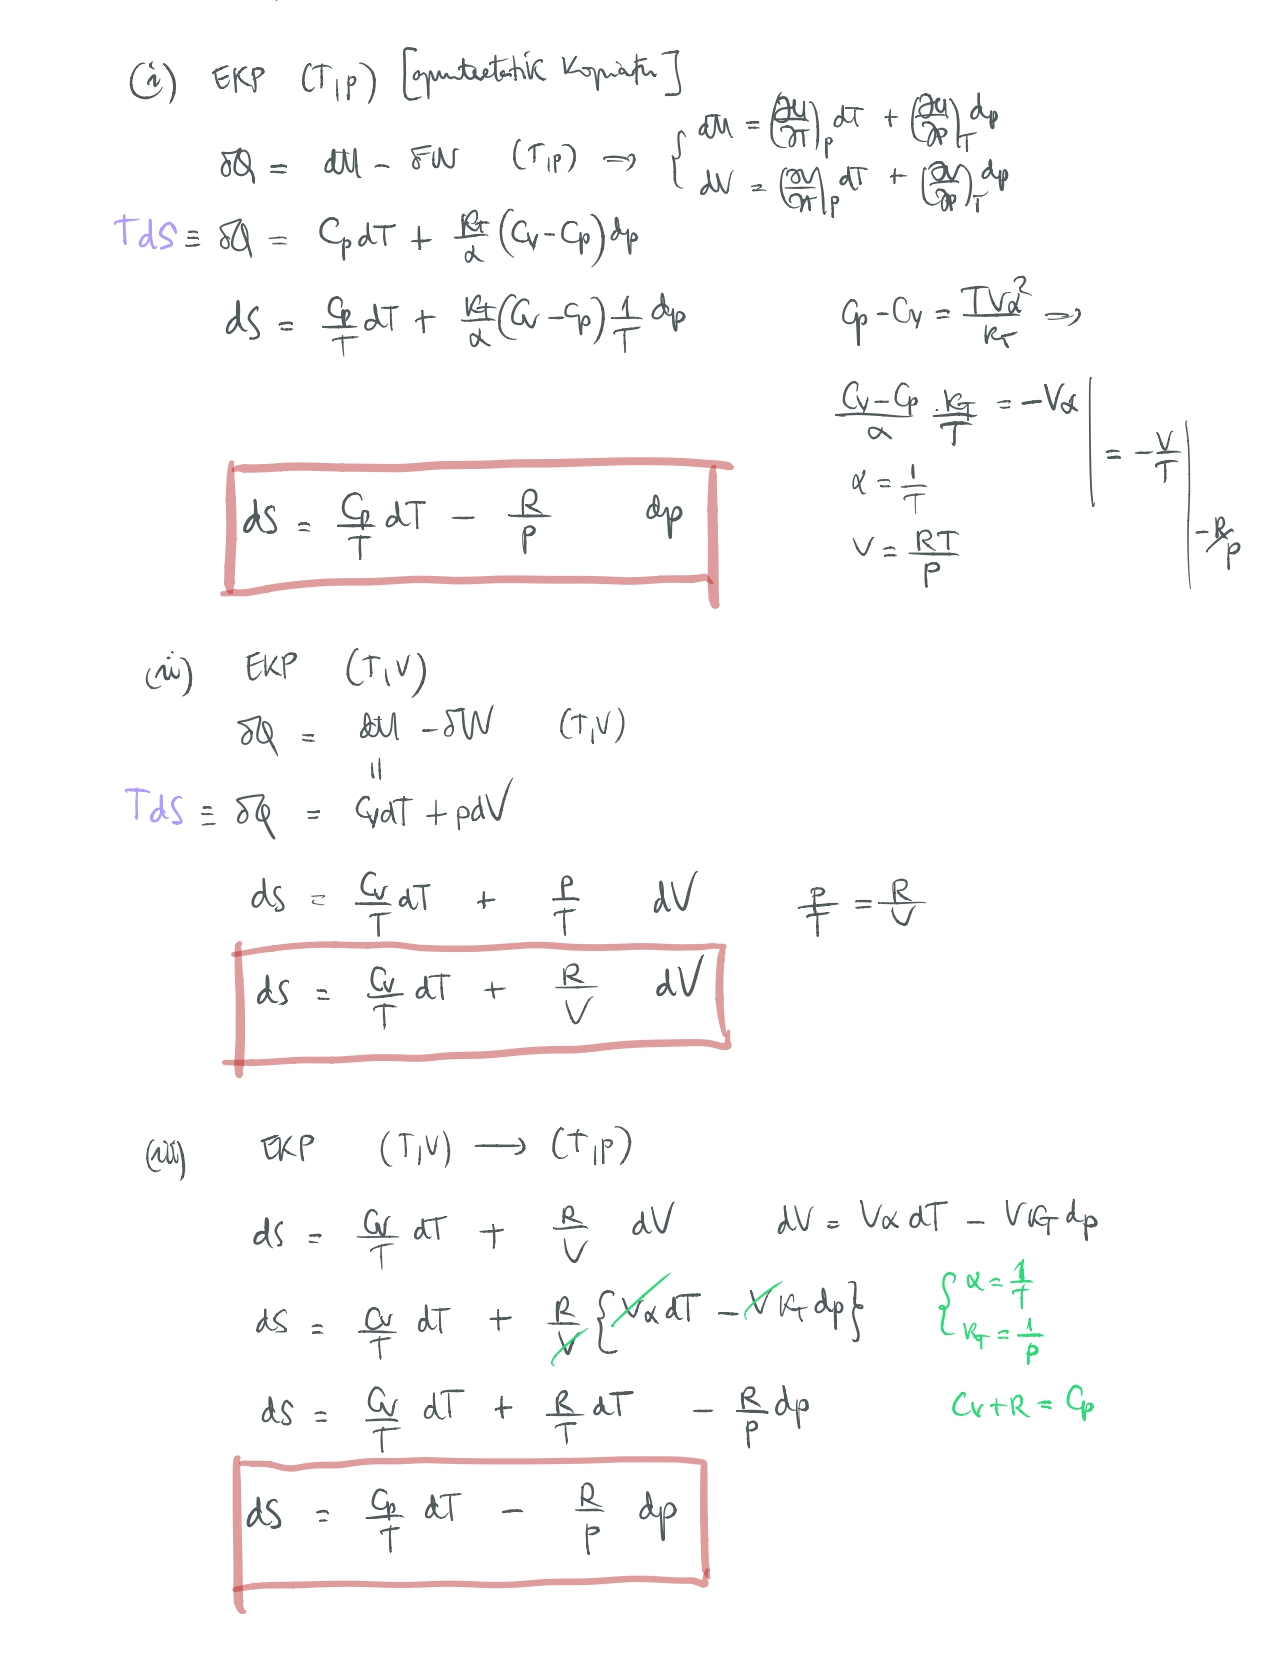 (i) EKP (T,P)
δQ = dU - δW (T,P) ⇒ { dU = (∂U/∂T)_P dT + (∂U/∂P)_T dp
dV = (∂V/∂T)_P dT + (∂V/∂P)_T dp
TdS ≡ δQ = C_p dT + κ_T/α (C_V - C_P) dp
dS = C_p/T dT + κ_T/α (C_V - C_P) 1/T dp
C_P - C_V = TVα²/κ_T ⇒
C_V - C_P/α · κ_T/T = -Vα | = -V/T | -R/P
α = 1/T
V = RT/P
dS = C_p/T dT - R/P dp
(ii) EKP (T,V)
δQ = dU - δW (T,V)
||
TdS ≡ δQ = C_V dT + pdV
dS = C_V/T dT + P/T dV P/T = R/V
dS = C_V/T dT + R/V dV
(iii) EKP (T,V) → (T,P)
dS = C_V/T dT + R/V dV dV = Vα dT - Vκ_T dp
dS = C_V/T dT + R/V {Vα dT - Vκ_T dp} { α = 1/T
κ_T = 1/P
dS = C_V/T dT + R/T dT - R/P dp C_V + R = C_P
dS = C_P/T dT - R/P dp